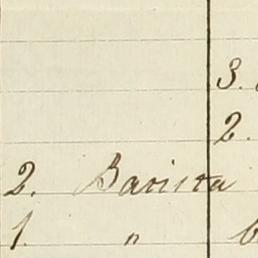 3.
2.
2. Barista
1. "